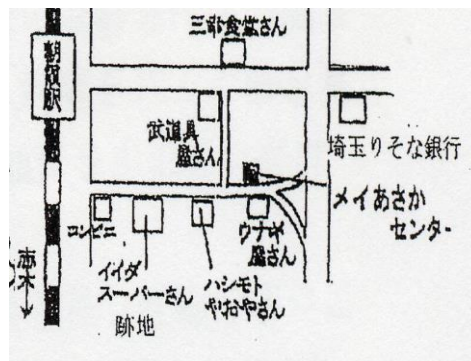 三幸食堂さん
朝霞駅
武道具
屋さん
埼玉りそな銀行
メイあさか
センター
コンビニ
イイダ
スーパーさん
跡地
ハシモト
やおやさん
ウナギ
屋さん